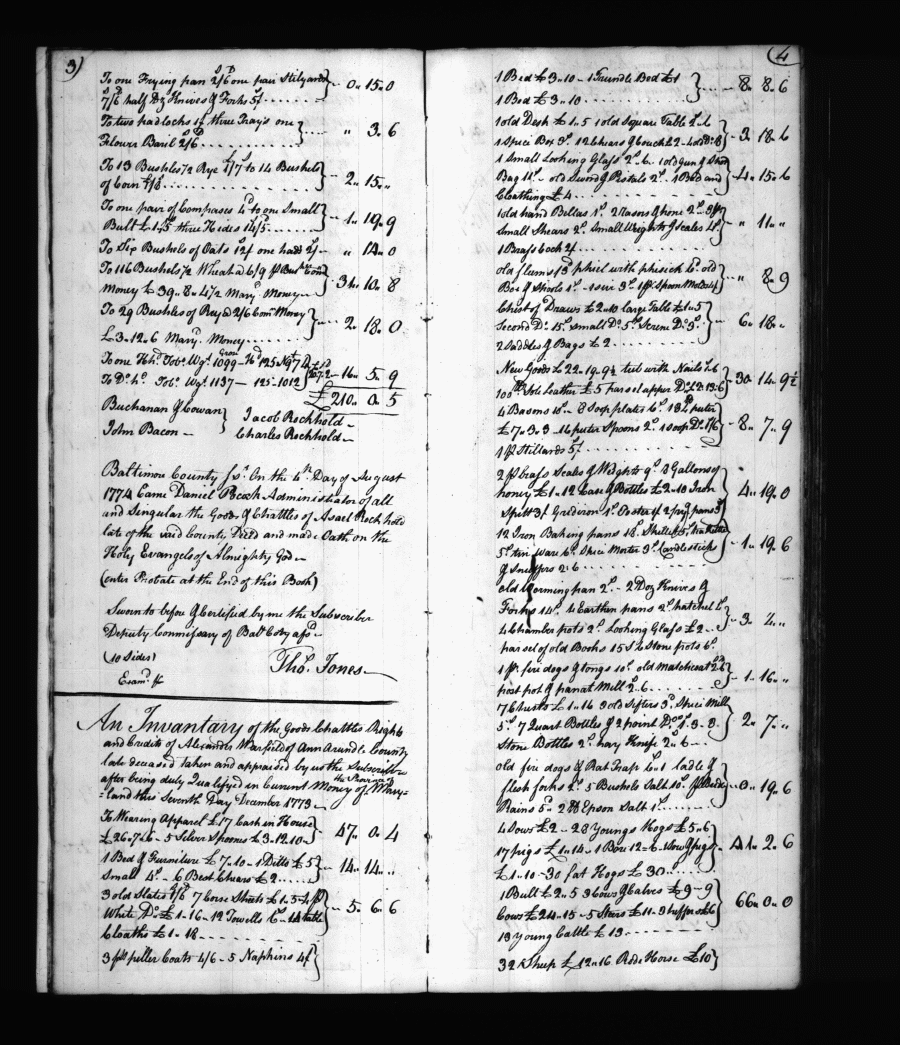 3)
To one Frying pan 2/6 one pair Stilyards
7/6 half Dz Knives & Forks 5/ } 0. 15. 0
To two padlocks 1/ three Trays one
Flower Baril 2/6 } " 3. 6
To 13 Bushels 1/2 Rye to 14 Bushels
of Corn } 2. 15. "
To one pair of Compases 4d to one Small
Bull £1.5 three Hides 14/5 } 1. 19. 9
To Six Bushels of Oats 12/ one 2/ " 14. 0
To 116 Bushels 1/2 Wheat a 6/9 Com
Money £ 39. 8. 4 1/2 Mary Money } 31. 10. 8
To 29 Bushles of Rey a 2/6 Com Money
£ 3. 12. 6 Mary Money } 2. 18. 0
To one Hhd Tobo Wgt 1099 125 N 974
To Do ho Tobo Wgt 1137 — 125. 1012 } 16. 5. 9
£ 210. 0. 5
Buchanan & Cowan } Jacob Rockhold
John Bacon } Charles Rockhold
Baltimore County Ss. On the 4th Day of August
1774 Came Daniel Pecock Administrator of all
and Singular the Goods & Chattles of Asael Rockhold
late of the said County Decd and made Oath on the
Holy Evangels of Almighty God
(enter Probate at the End of this Book)
Sworn to before & Certified by me the Subscriber
Deputy Commissary of Balt Coty afsd
(10 Sides) Thos. Jones
Examd
An Invantary of the Goods Chattles Rights
and Credits of Alexander Warfield of Ann Arundle County
late deceased taken and appraised by us the Subscribers
after being duly Qualified in Current Money of the Province of Mary-
=land this Seventh Day December 1773
To Wearing Apparel £17 Cash in House
£26.7.6 – 5 Silver Spoons £3.12.10 } 47. 0. 4
1 Bed & Furniture £7.10 – 1 Ditto £5
Small 4s – 6 Best Chears £2 } 14. 14. "
3 old Slates 1/6 7 Corse Sheets £1.5
White Do £1–16–12 Towells 6s
Cloaths £1–18 } 5. 6. 6
3 Coats 4/6 – 5 Napkins 4/ }
4
1 Bed £3.10 – 1 Trundle Bed £1
1 Bed £3.10 } 8. 8. 6
1 old Desk £1.5 1 old Square Table 2.6
1 Spice Box 3s 12 Chears & Couch £2 } 3. 18. 6
1 Small Looking Glass 2.6 1 old Gun & Shot
Bag 11s – old Sword & Pistals 2s 1 Bed and
Cloathing £4 } 4. 15. 6
1 old hand Bellas 1s 2 Rasors & hone 2s 3
Small Shears 2s Small Weights & Scales 4s
1 Brass Cock 2/ } " 11. "
old flums phiel with phisick old
Box & Spools 1s 1 3s 1 Spoon } " 8. 9
Chest of Draws £2.10 Large Table £1.5
Second Do 15s Small Do 5s Screne Do 3s
2 Saddles & Bags £2 } 6. 18. "
New Goods £22.19.9½ ted with Nails £6
100 lb Sole Leather £5 parsel upper Do £ 13.6 } 30. 14. 9½
4 Basons 10s – 8 Soop plates 6s puter
£7.3.3 – 16 puter Spoons 2s 1 Soop Do 1/6
1 pr Stillards 5/ } 8. 7. 9
2 pr brass Scales & Weights 9s 3 Gallons of
honey £1.12 Case & Bottles £2.10 Iron
Spitt 3/ Grediron 1s 2 frying pans 3/ } 4. 19. 0
12 Iron Baking pans 18s Skellet 5s
5s tin Ware 6s Spice Morter 3s Candlesticks
& Snuffers 2.6 } 1. 19. 6
old Worming pan 2s – 2 Doz Knives &
Forks 14s 4 Earthen pans 2s hatchel
4 Chamber pots 2s Looking Glass £2
parsel of old Books 15s 6 Stone pots 6s } 3. 2. "
1 pr fire dogs & tongs 10s old
post pot & panat Mill 2.6 } 1. 16. "
7 Chests £1.16 3 old Sifters 3s Spice Mill
5s 7 Quart Bottles & 2 point Do 1.3
Stone Bottles 2s hay Knife 2.6 } 2. 7. "
old fire dogs & Rat Trap £1 ladle &
flesh forks 2s 5 Bushels Salt 10s
Rains 5s 2 lb Epson Salt 1s } 0. 19. 6
4 Sows £2 – 28 Youngs Hogs £5.6
17 pigs £1.14 – 1 Bore 12.6 1 Sow & pigs
£1.10 – 30 fat Hogs £30 } 41. 2. 6
1 Bull £2.5 3 Cows & Calves £9–9
Cows £24.15 – 5 Stears £11 3 heffers £6
13 Young Cattle £13 } 66. 0. 0
32 Sheep £12.16 Rode Horse £10 }